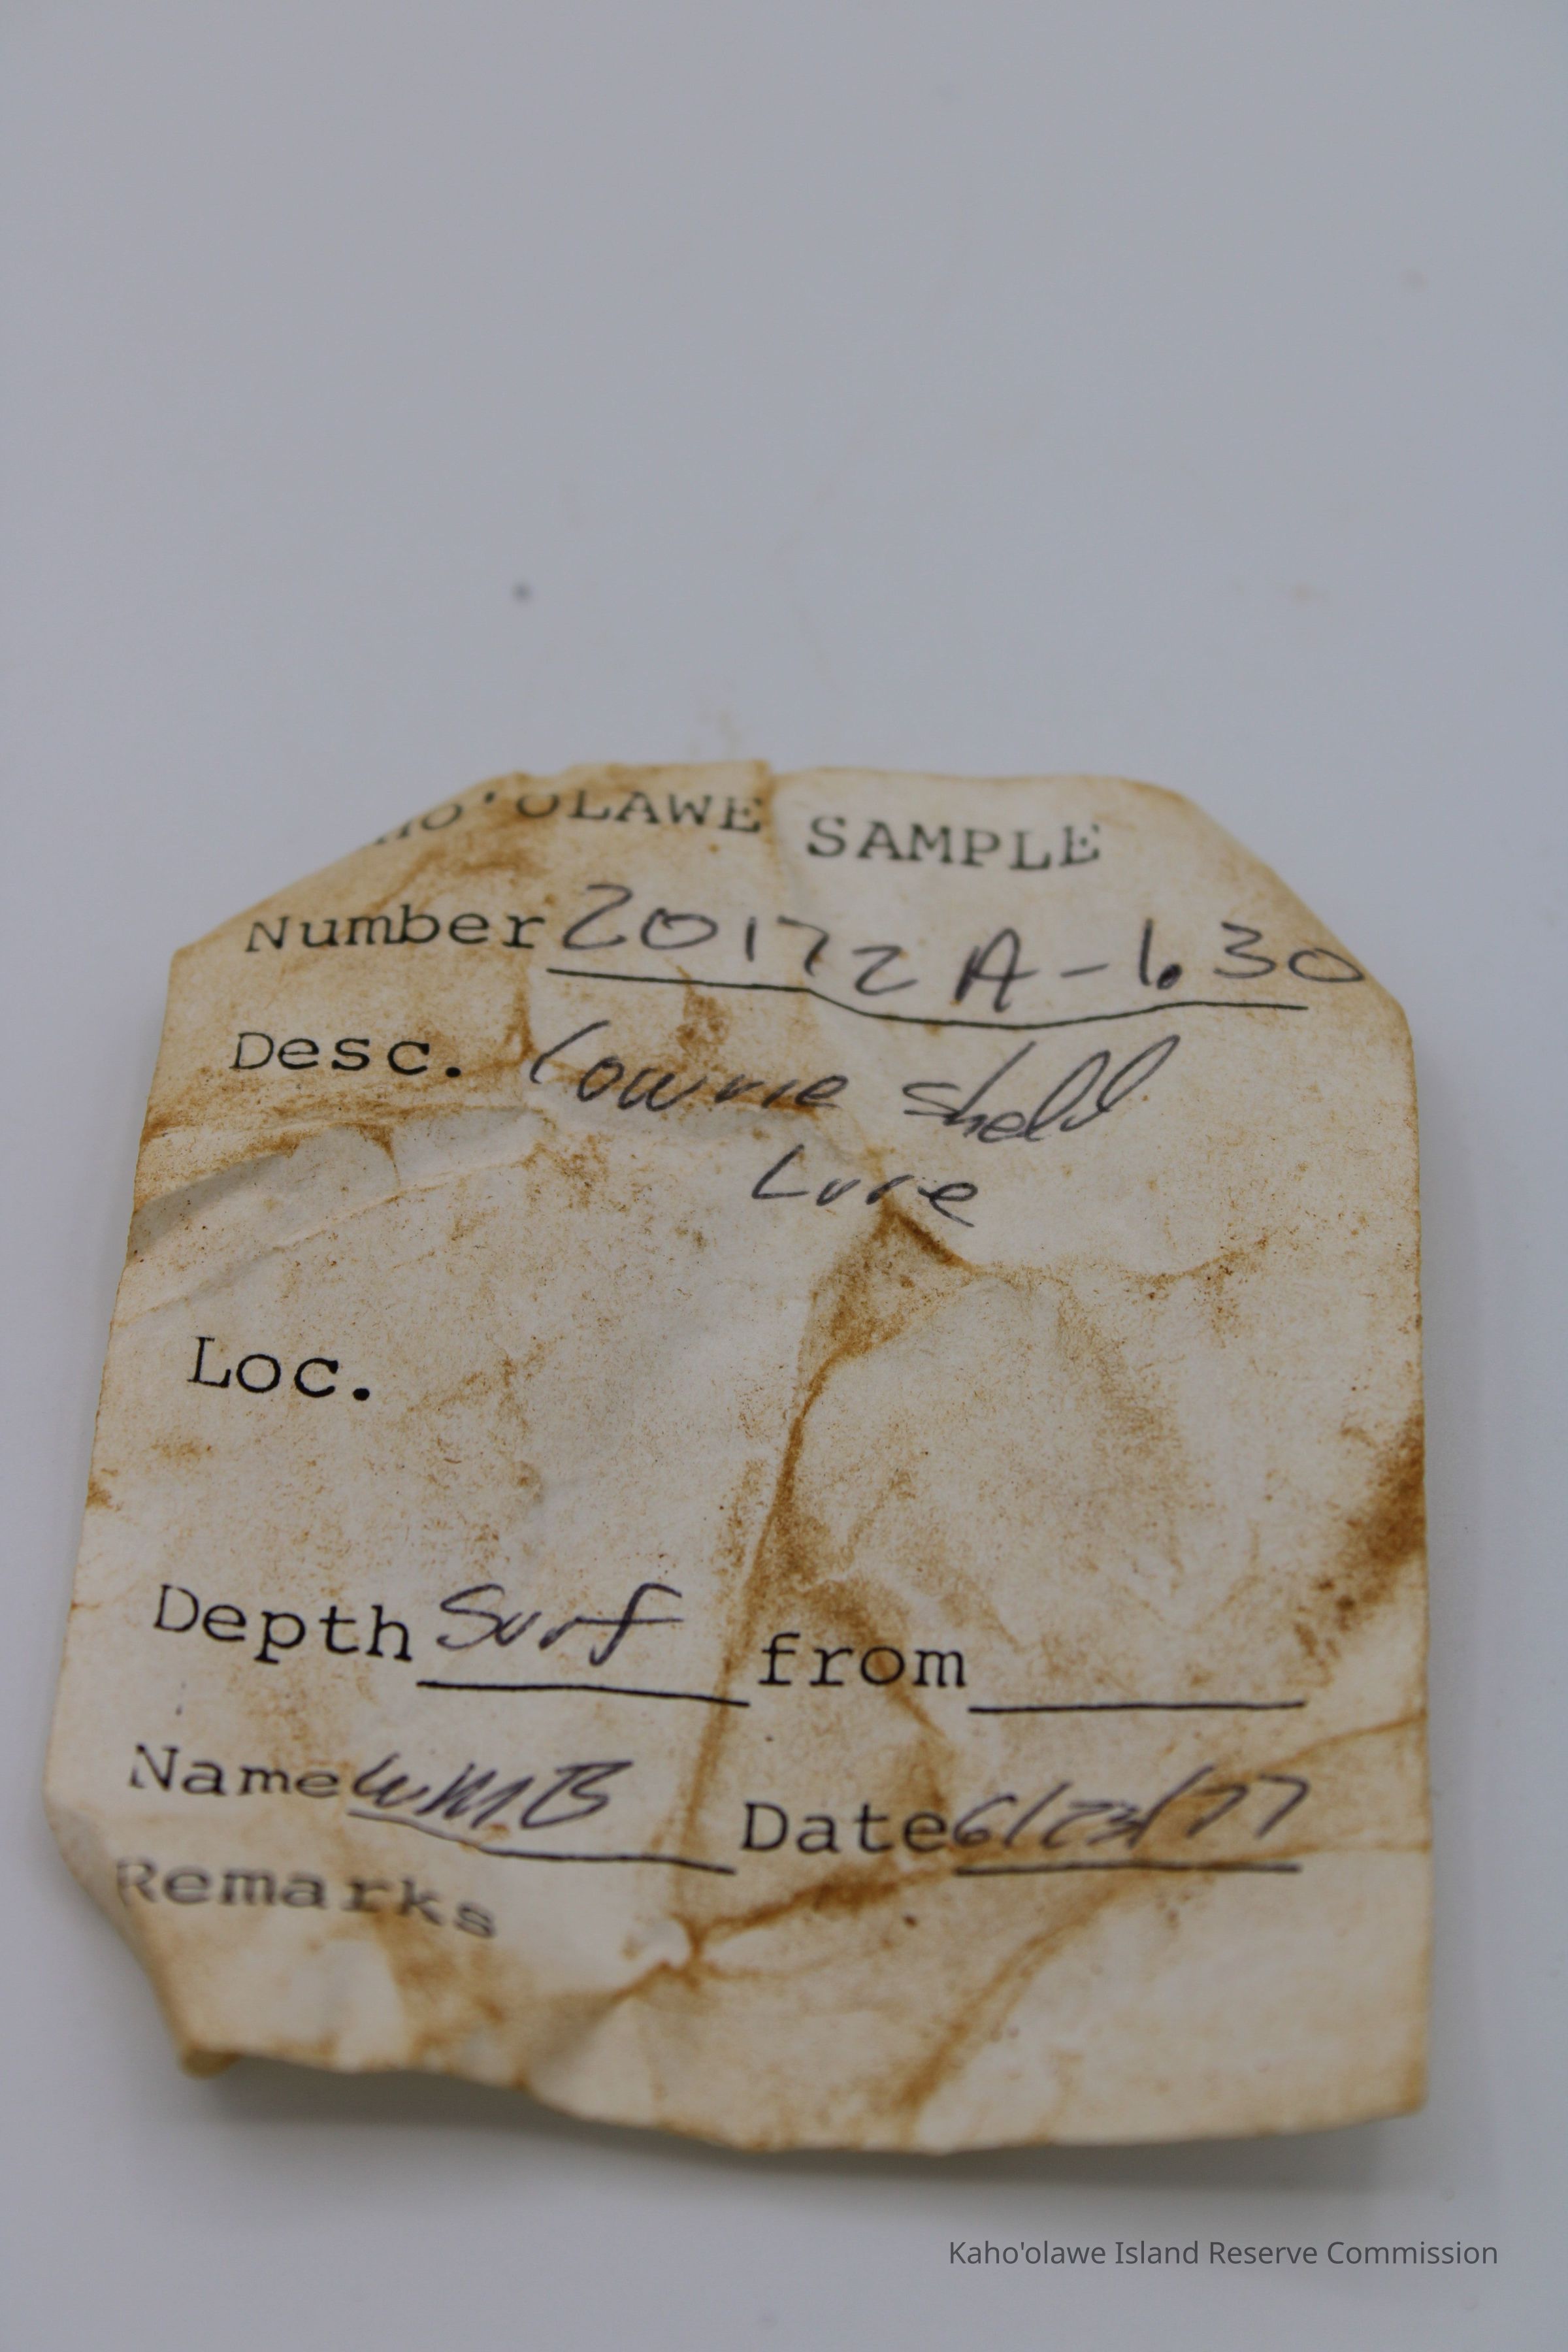 HO'OLAWE SAMPLE
Number 20172A-1.30
Desc. Cowrie shell
Lure
Loc.
Depth Surf from
Name WMB Date 6/23/77
Remarks
Kaho'olawe Island Reserve Commission